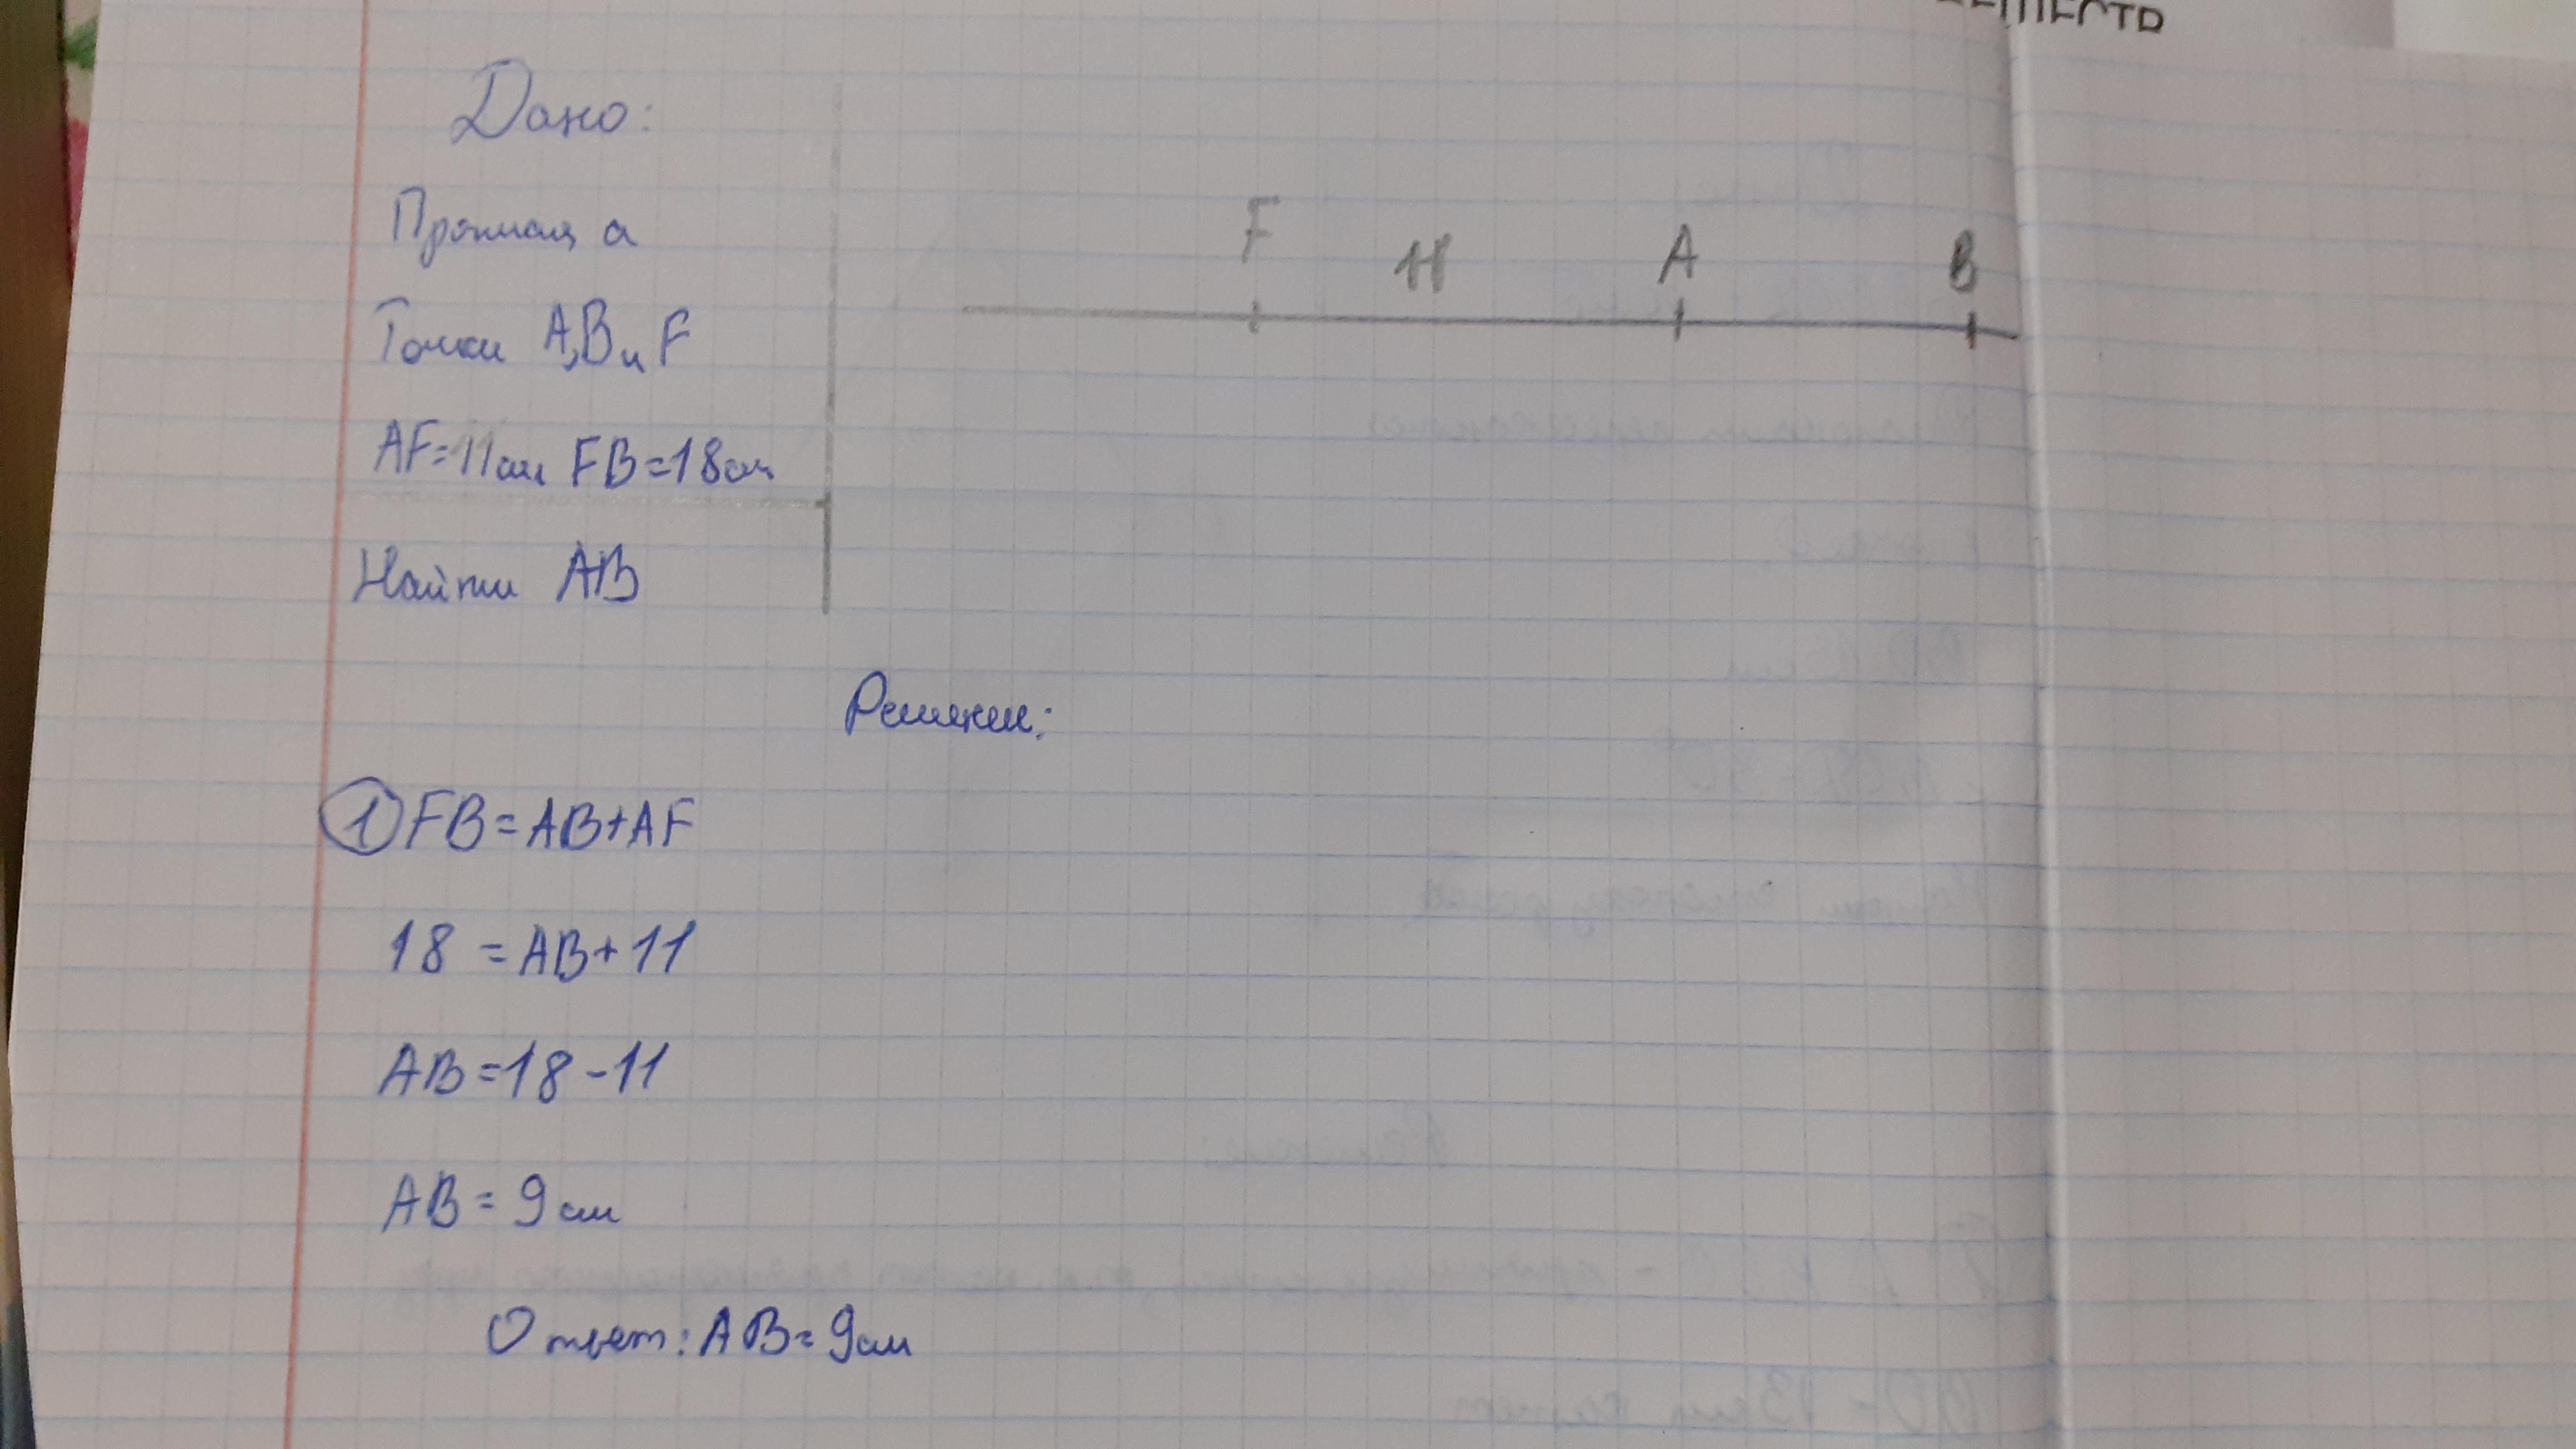 Дано:
Прямая a
F
11
A
B
Точки A,B и F
AF=11см FB=18см
Найти AB
Решение:
1 FB=AB+AF
18 =AB+11
AB=18-11
AB= 9см
Ответ: AB=9см